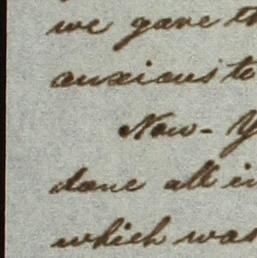 we gave th
anxious to
Now- Y
done all in
which was